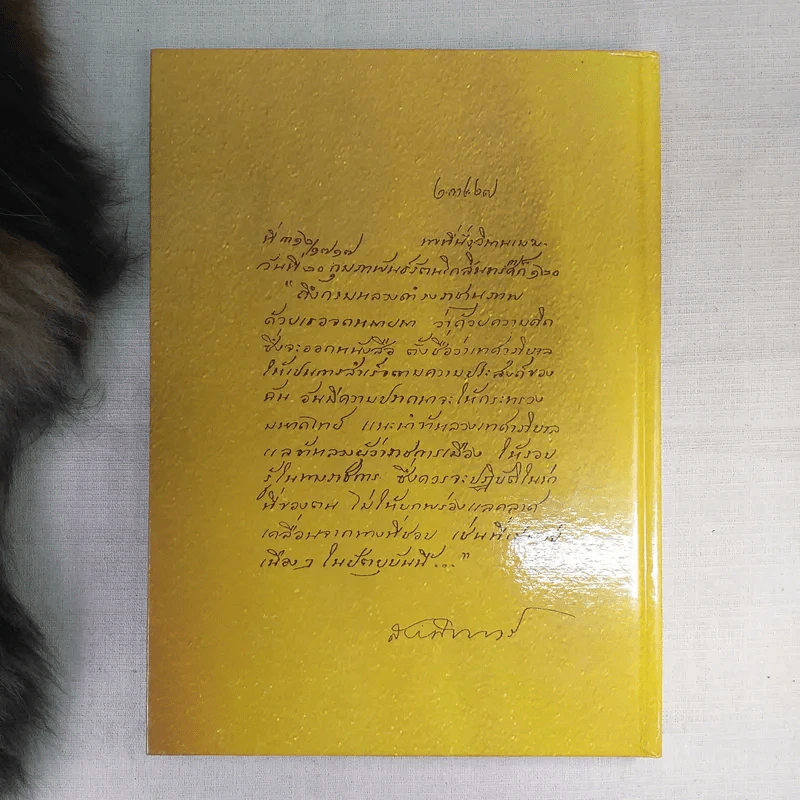 ที่ ๓๑๖/๑๗๑๗ พระที่นั่งวิมานเมฆ
วันที่ ๒๐ กุมภาพันธ์รัตนโกสินทรศก ๑๒๐
“ถึงกรมหลวงดำรงราชานุภาพ
ด้วยเธอจดหมายมา ว่าด้วยความคิด
ซึ่งจะออกหนังสือ ตั้งชื่อว่าเทศาภิบาล
ให้เป็นการสำเร็จตามความประสงค์ของ
ฉัน อันมีความปรารถนาจะให้กระทรวง
มหาดไทย แนะนำข้าหลวงเทศาภิบาล
แลข้าหลวงผู้ว่าราชการเมือง ให้รอบ
รู้ในทางราชการ ซึ่งควรจะปฏิบัติในน่า
ที่ของตน ไม่ให้บกพร่องแลคลาด
เคลื่อนจากทางที่ชอบ เช่นที่
เนืองๆ ในปัตยุบันนี้...”